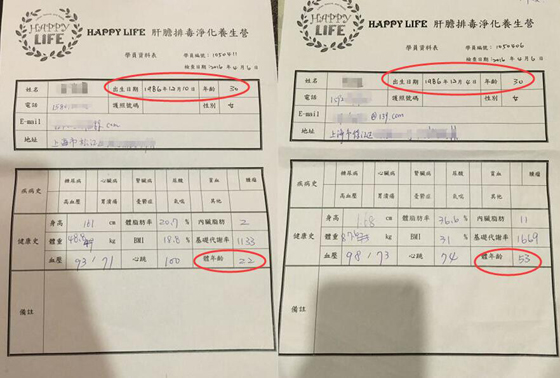 HAPPY LIFE
HAPPY LIFE 肝膽排毒淨化養生營
學員資料表
學員編號:1050411
檢查日期:2016年4月6日
姓名
出生日期
1986年12月10日
年齡
30
電話
護照號碼
性別
E-mail
地址
上海市
疾病史
糖尿病
心臟病
腎臟病
尿酸
貧血
腫瘤
高血壓
胃潰瘍
憂鬱症
氣喘
其他
健康史
身高
161
cm
體脂肪率
20.7
%
內臟脂肪
2
體重
kg
BMI
18.8
%
基礎代謝率
1133
血壓
93/71
心跳
100
體年齡
22
備註
HAPPY
LIFE
HAPPY LIFE 肝膽排毒淨化養生營
學員資料表
學員編號:1050406
檢查日期:2016年4月6日
姓名
出生日期
1986年12月4日
年齡
30
電話
護照號碼
性別
E-mail
地址
上海市
疾病史
糖尿病
心臟病
腎臟病
尿酸
貧血
腫瘤
高血壓
胃潰瘍
憂鬱症
氣喘
其他
健康史
身高
cm
體脂肪率
36.6
%
內臟脂肪
11
體重
kg
BMI
31
%
基礎代謝率
1669
血壓
98/73
心跳
74
體年齡
53
備註